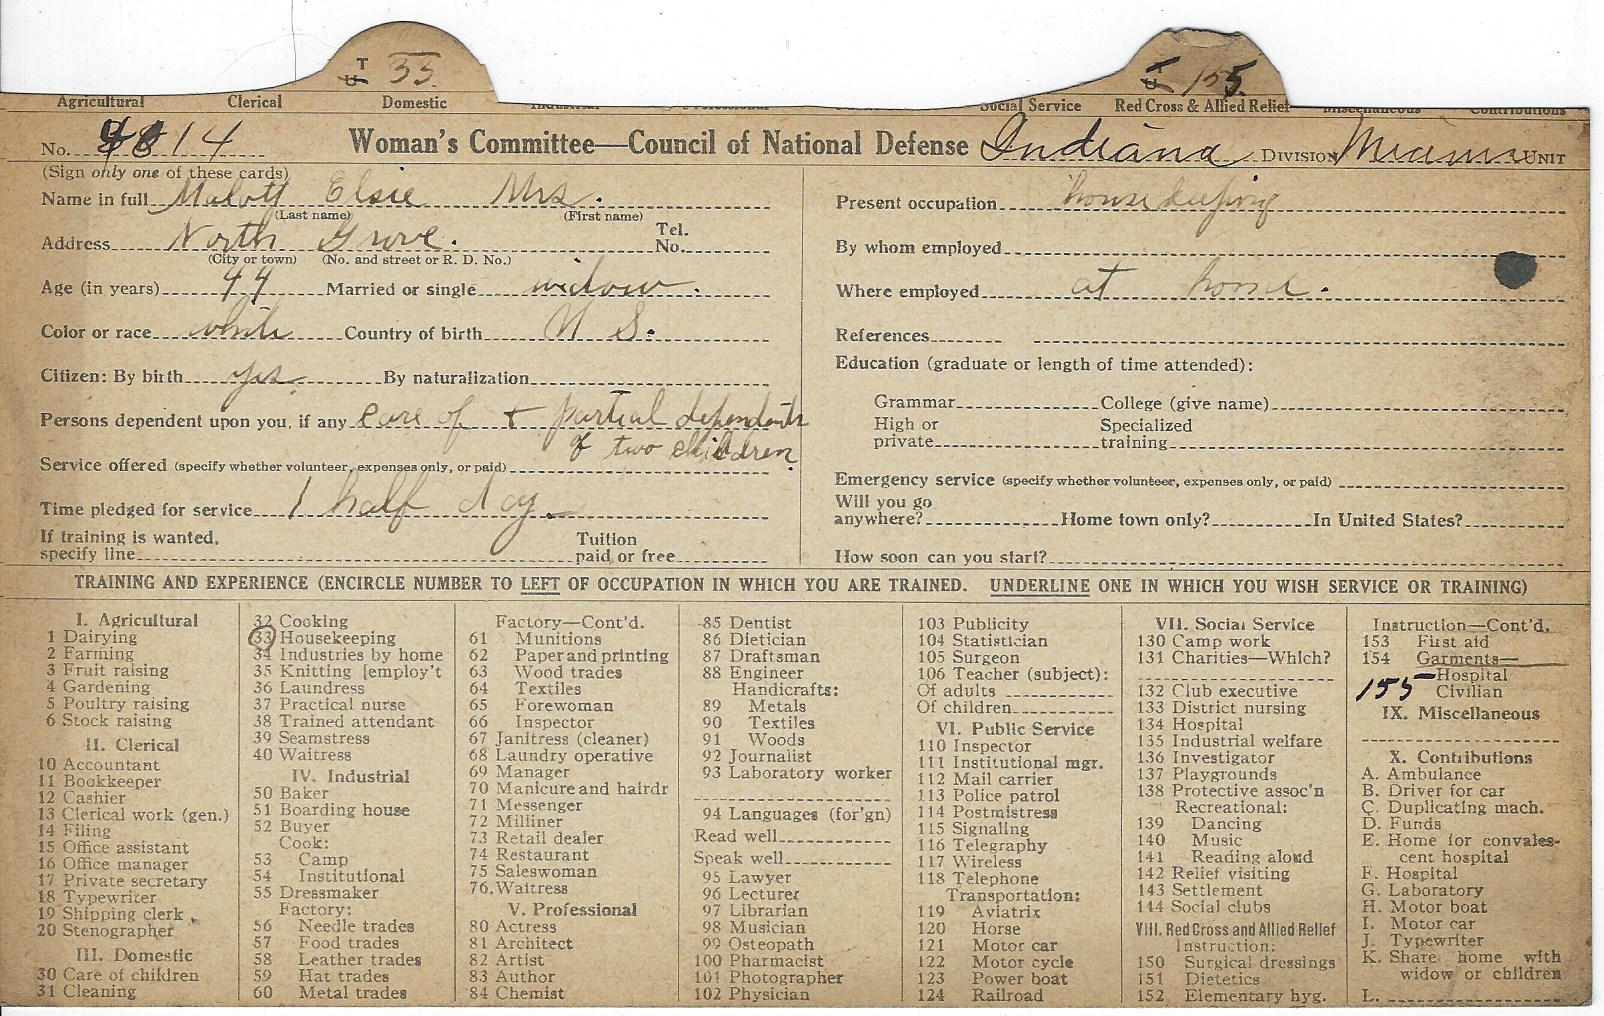 T 33
T 155
Agricultural Clerical Domestic Social Service Red Cross & Allied Relief Miscellaneous Contributions
No. 14 Woman's Committee—Council of National Defense Indiana Division Miami Unit
(Sign only one of these cards)
Name in full Malott Elsie Mrs.
(Last name) (First name)
Address North Grove. Tel. No.
(City or town) (No. and street or R. D. No.)
Age (in years) 44 Married or single widow.
Color or race white Country of birth U S.
Citizen: By birth yes By naturalization
Persons dependent upon you, if any Care of + partial dependents
of two children
Service offered (specify whether volunteer, expenses only, or paid)
Time pledged for service 1 half day.
If training is wanted, specify line Tuition paid or free
Present occupation housekeeping
By whom employed
Where employed at home.
References
Education (graduate or length of time attended):
Grammar College (give name)
High or private Specialized training
Emergency service (specify whether volunteer, expenses only, or paid)
Will you go anywhere? Home town only? In United States?
How soon can you start?
TRAINING AND EXPERIENCE (ENCIRCLE NUMBER TO LEFT OF OCCUPATION IN WHICH YOU ARE TRAINED. UNDERLINE ONE IN WHICH YOU WISH SERVICE OR TRAINING)
I. Agricultural
1 Dairying
2 Farming
3 Fruit raising
4 Gardening
5 Poultry raising
6 Stock raising
II. Clerical
10 Accountant
11 Bookkeeper
12 Cashier
13 Clerical work (gen.)
14 Filing
15 Office assistant
16 Office manager
17 Private secretary
18 Typewriter
19 Shipping clerk
20 Stenographer
III. Domestic
30 Care of children
31 Cleaning
32 Cooking
33 Housekeeping
34 Industries by home
35 Knitting [employ't
36 Laundress
37 Practical nurse
38 Trained attendant
39 Seamstress
40 Waitress
IV. Industrial
50 Baker
51 Boarding house
52 Buyer
Cook:
53 Camp
54 Institutional
55 Dressmaker
Factory:
56 Needle trades
57 Food trades
58 Leather trades
59 Hat trades
60 Metal trades
Factory—Cont'd.
61 Munitions
62 Paper and printing
63 Wood trades
64 Textiles
65 Forewoman
66 Inspector
67 Janitress (cleaner)
68 Laundry operative
69 Manager
70 Manicure and hairdr
71 Messenger
72 Milliner
73 Retail dealer
74 Restaurant
75 Saleswoman
76. Waitress
V. Professional
80 Actress
81 Architect
82 Artist
83 Author
84 Chemist
85 Dentist
86 Dietician
87 Draftsman
88 Engineer
Handicrafts:
89 Metals
90 Textiles
91 Woods
92 Journalist
93 Laboratory worker
94 Languages (for'gn)
Read well
Speak well
95 Lawyer
96 Lecturer
97 Librarian
98 Musician
99 Osteopath
100 Pharmacist
101 Photographer
102 Physician
103 Publicity
104 Statistician
105 Surgeon
106 Teacher (subject):
Of adults
Of children
VI. Public Service
110 Inspector
111 Institutional mgr.
112 Mail carrier
113 Police patrol
114 Postmistress
115 Signaling
116 Telegraphy
117 Wireless
118 Telephone
Transportation:
119 Aviatrix
120 Horse
121 Motor car
122 Motor cycle
123 Power boat
124 Railroad
VII. Social Service
130 Camp work
131 Charities—Which?
132 Club executive
133 District nursing
134 Hospital
135 Industrial welfare
136 Investigator
137 Playgrounds
138 Protective assoc'n
Recreational:
139 Dancing
140 Music
141 Reading aloud
142 Relief visiting
143 Settlement
144 Social clubs
VIII. Red Cross and Allied Relief
Instruction:
150 Surgical dressings
151 Dietetics
152 Elementary hyg.
Instruction—Cont'd.
153 First aid
154 Garments—
Hospital
155 Civilian
IX. Miscellaneous
X. Contributions
A. Ambulance
B. Driver for car
C. Duplicating mach.
D. Funds
E. Home for convales-
cent hospital
F. Hospital
G. Laboratory
H. Motor boat
I. Motor car
J. Typewriter
K. Share home with
widow or children
L.